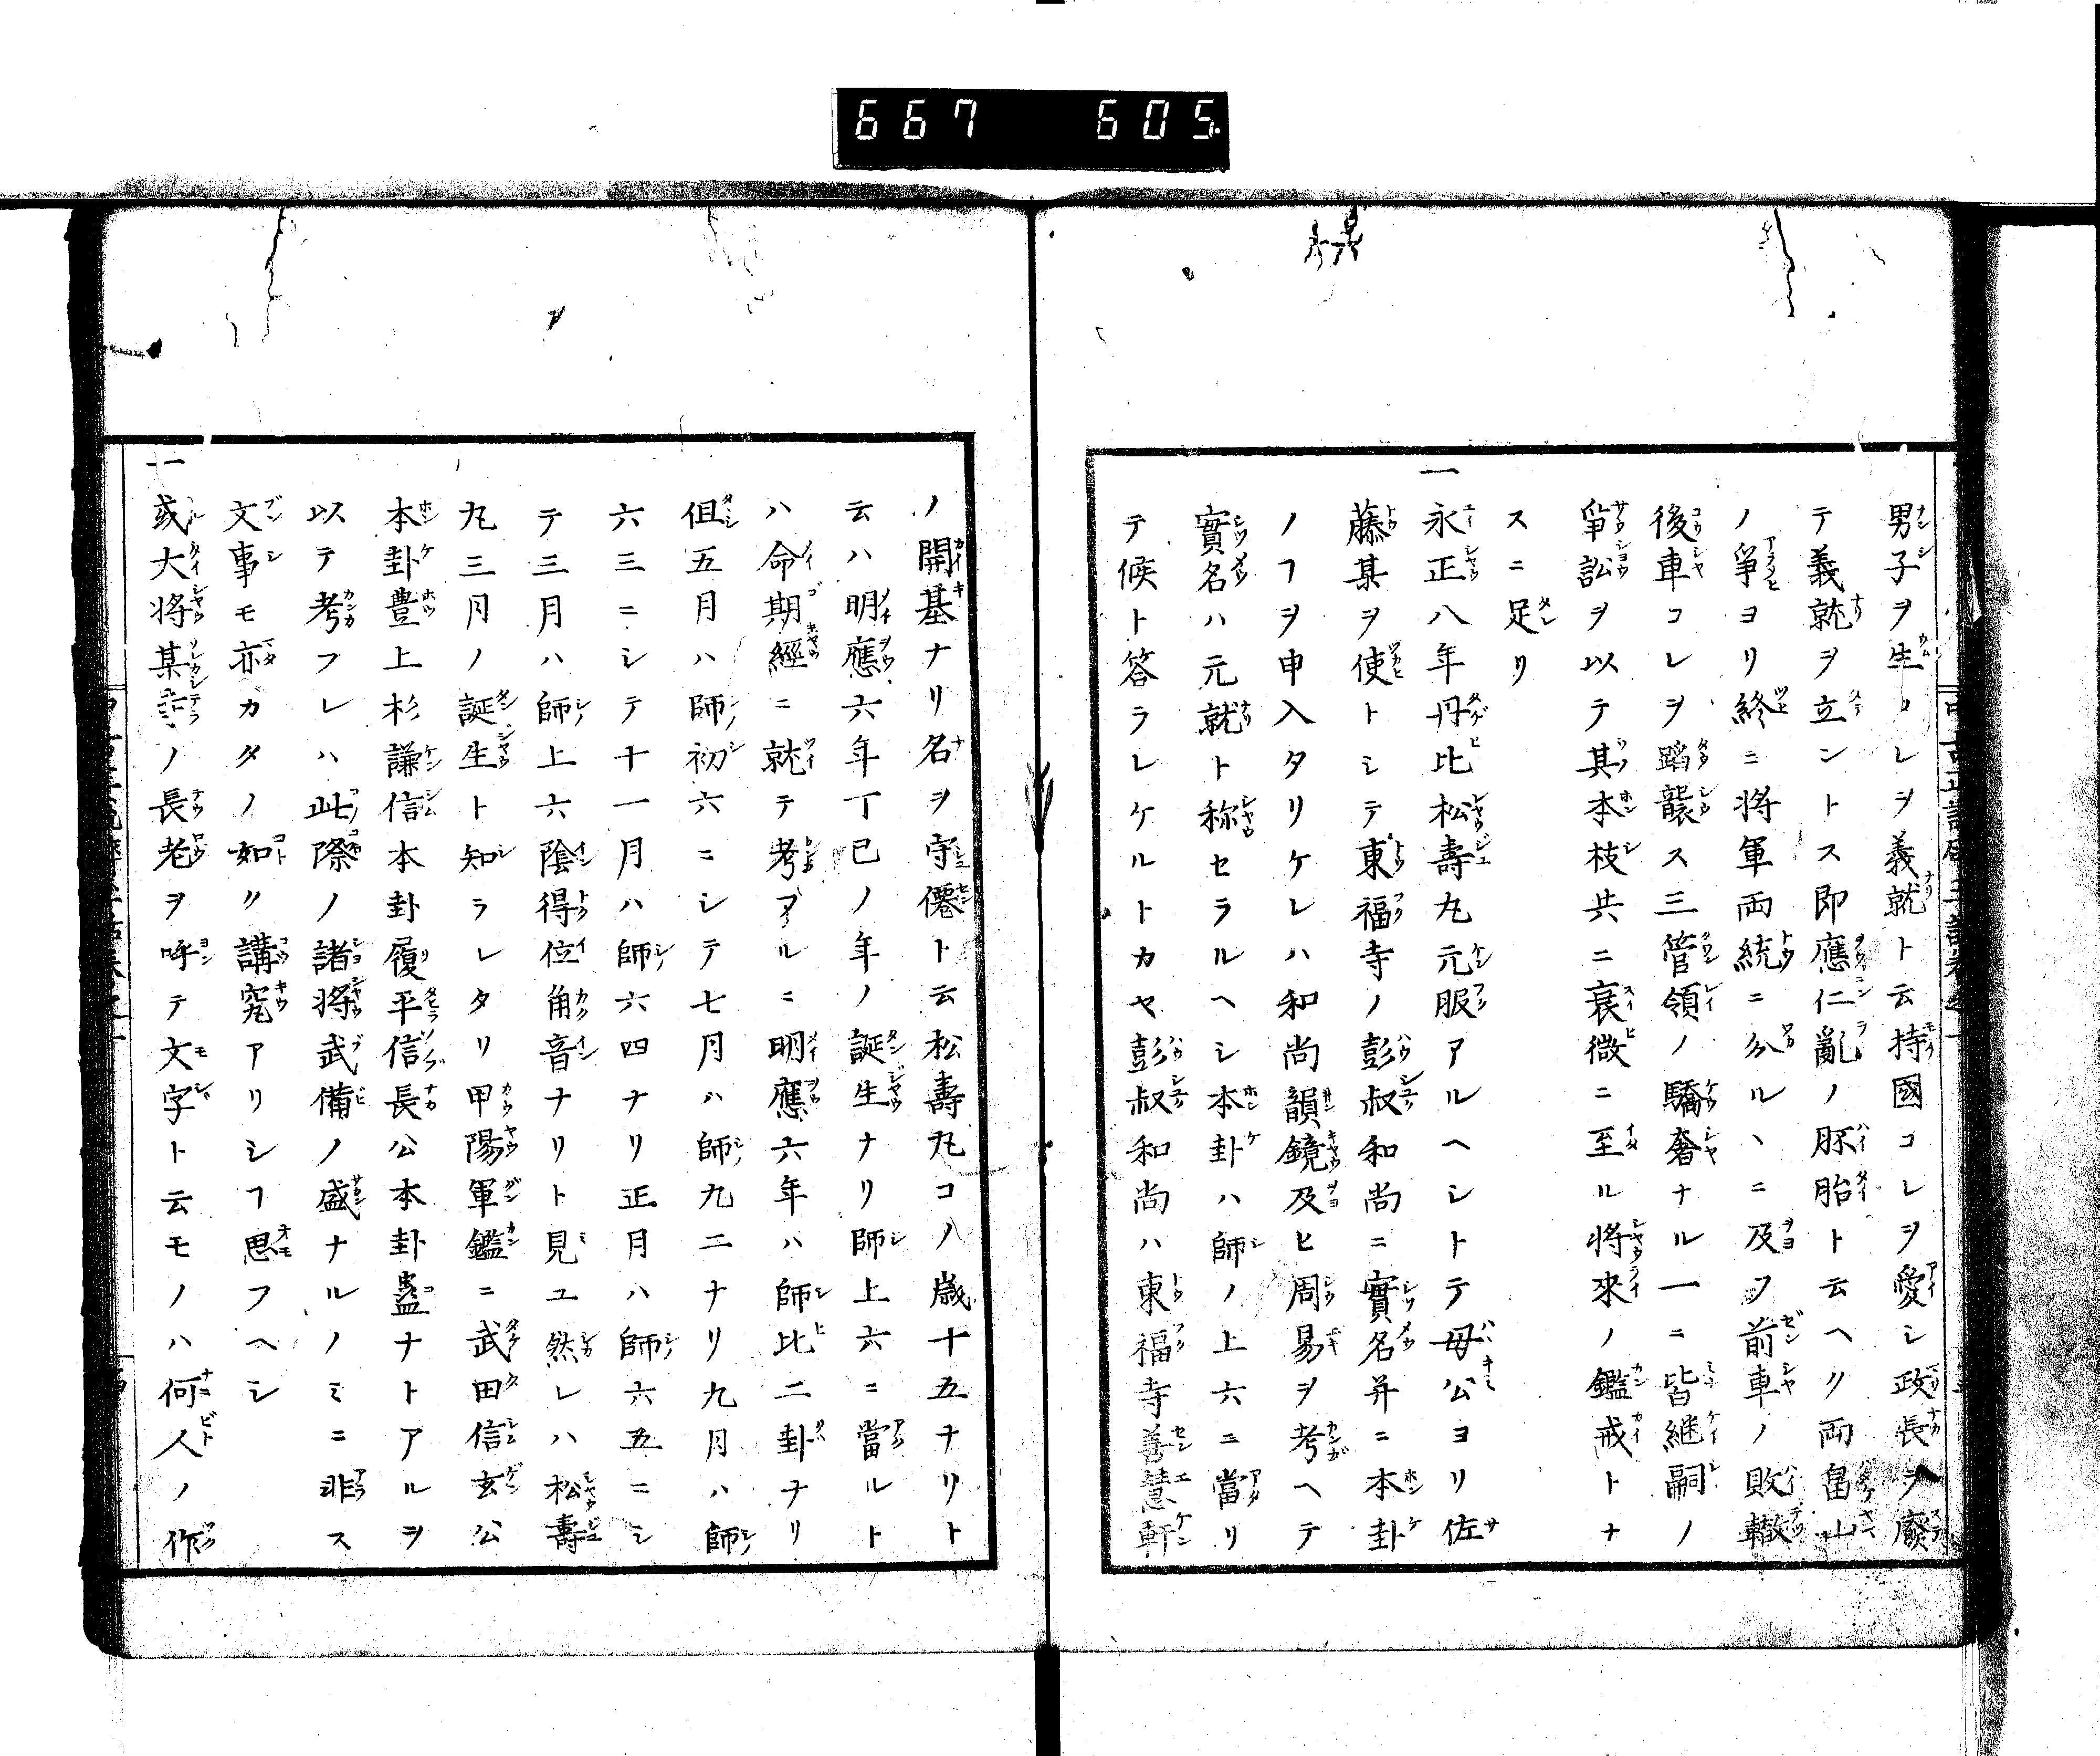 667 605
男子ヲ生コレヲ義就ト云持國コレヲ愛シ政長ヲ廢
テ義就ヲ立ントス即應仁亂ノ胚胎ト云ヘリ両畠山
ノ爭ヨリ終ニ将軍両統ニ分ルヽニ及フ前車ノ敗轍
後車コレヲ蹈襲ス三管領ノ驕奢ナル一ニ皆継嗣ノ
爭訟ヲ以テ其本枝共ニ衰微ニ至ル将來ノ鑑戒トナ
スニ足リ
一永正八年丹比松壽丸元服アルヘシトテ母公ヨリ佐
藤某ヲ使トシテ東福寺ノ彭叔和尚ニ實名并ニ本卦
ノヿヲ申入タリケレハ和尚韻鏡及ヒ周易ヲ考ヘテ
實名ハ元就ト称セラルヘシ本卦ハ師ノ上六ニ當リ
テ候ト答ラレケルトカヤ彭叔和尚ハ東福寺善慧軒
ノ開基ナリ名ヲ守僊ト云松壽丸コノ歳十五ナリト
云ハ明應六年丁巳ノ年ノ誕生ナリ師上六ニ當ルト
ハ命期經ニ就テ考フルニ明應六年ハ師比二卦ナリ
但五月ハ師初六ニシテ七月ハ師九二ナリ九月ハ師
六三ニシテ十一月ハ師六四ナリ正月ハ師六五ニシ
テ三月ハ師上六陰得位角音ナリト見ユ然レハ松壽
丸三月ノ誕生ト知ラレタリ甲陽軍鑑ニ武田信玄公
本卦豊上杉謙信本卦履平信長公本卦蠱ナトアルヲ
以テ考フレハ此際ノ諸将武備ノ盛ナルノミニ非ス
文事モ亦カタノ如ク講究アリシヿ思フヘシ
一或大将某寺ノ長老ヲ呼テ文字ト云モノハ何人ノ作